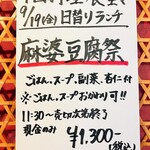 9/19(金)日替りランチ
麻婆豆腐祭
ごはん、スープ、副菜、杏仁付
※ごはん、スープおかわり可!!
11:30〜売切次第終了
現金のみ ¥1,300-
(税込)